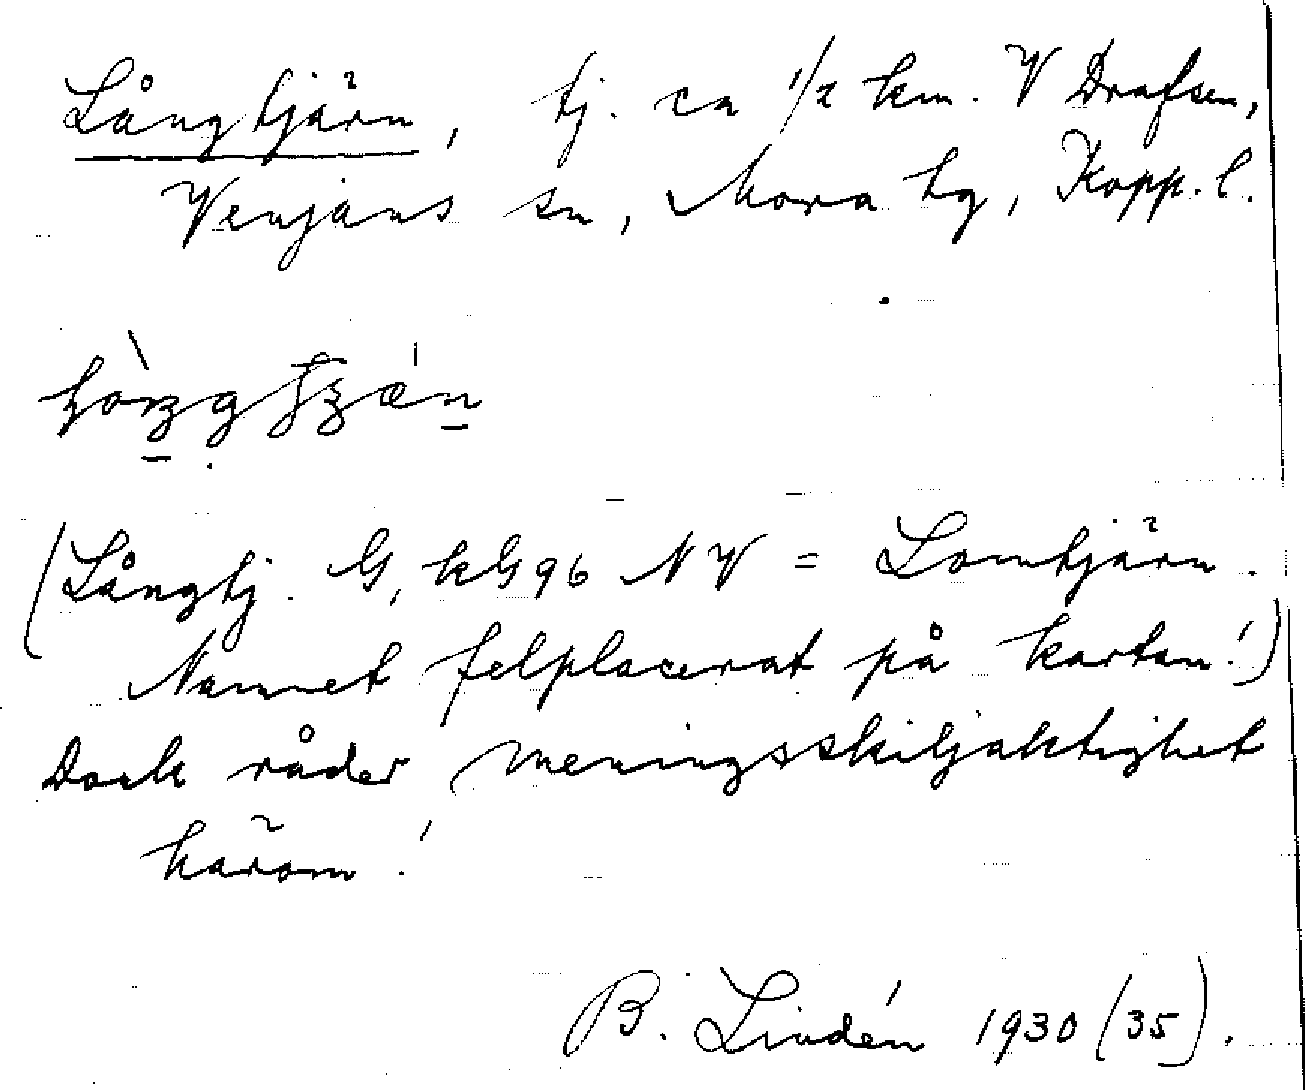 Långtjärn, tj. ca 1/2 km. V Drafsen,
Venjans sn, Mora tg, Kopp. l.
(Långtj. G, kG96 NV = Lomtjärn.
Namnet felplacerat på kartan!)
Dock råder meningsskiljaktighet
härom!
B. Lindén 1930 (35).